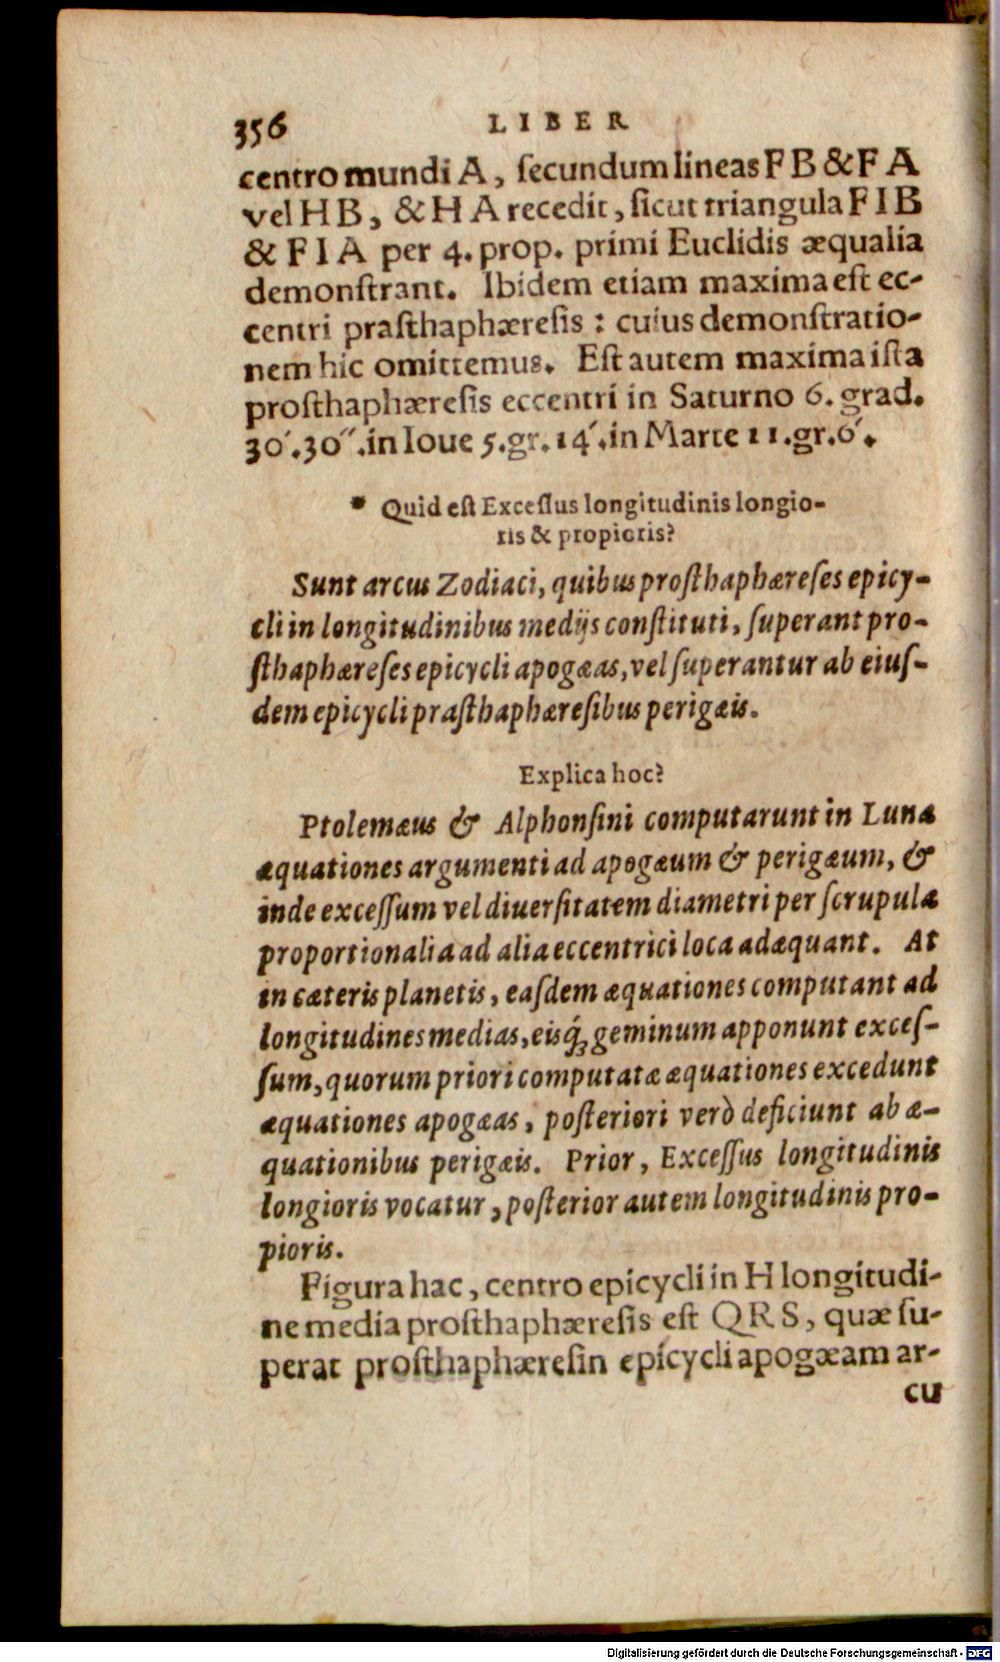 356 LIBER
centro mundi A, ſecundum lineas F B & F A
vel H B, & H A recedit, ſicut triangula F I B
& F I A per 4. prop. primi Euclidis æqualia
demonſtrant. Ibidem etiam maxima eſt ec-
centri praſthaphæreſis : cuius demonſtratio-
nem hic omittemus. Eſt autem maxima iſta
proſthaphæreſis eccentri in Saturno 6. grad.
30′.30″.in Ioue 5.gr.14′.in Marte 11.gr.6′.
* Quid eſt Exceſſus longitudinis longio-
ris & propioris?
Sunt arcus Zodiaci, quibus proſthaphæreſes epicy-
cli in longitudinibus medijs conſtituti, ſuperant pro-
ſthaphæreſes epicycli apogæas, vel ſuperantur ab eiuſ-
dem epicycli praſthaphæreſibus perigæis.
Explica hoc?
Ptolemæus & Alphonſini computarunt in Luna
æquationes argumenti ad apogæum & perigæum, &
inde exceſſum vel diuerſitatem diametri per ſcrupula
proportionalia ad alia eccentrici loca adæquant. At
in cæteris planetis, eaſdem æquationes computant ad
longitudines medias, eisq́; geminum apponunt exceſ-
ſum, quorum priori computatæ æquationes excedunt
æquationes apogæas, poſteriori verò deficiunt ab æ-
quationibus perigæis. Prior, Exceſſus longitudinis
longioris vocatur, poſterior autem longitudinis pro-
pioris.
Figura hac, centro epicycli in H longitudi-
ne media proſthaphæreſis eſt Q R S, quæ ſu-
perat proſthaphæreſin epicycli apogæam ar-
cu
Digitalisierung gefördert durch die Deutsche Forschungsgemeinschaft - DFG